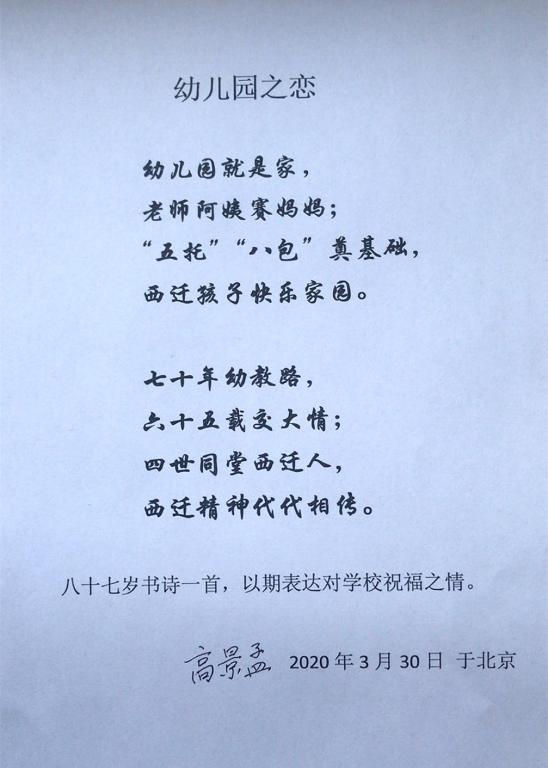 幼儿园之恋
幼儿园就是家，
老师阿姨赛妈妈；
“五托”“八包”奠基础，
西迁孩子快乐家园。
七十年幼教路，
六十五载交大情；
四世同堂西迁人，
西迁精神代代相传。
八十七岁书诗一首，以期表达对学校祝福之情。
高景孟 2020年3月30日 于北京